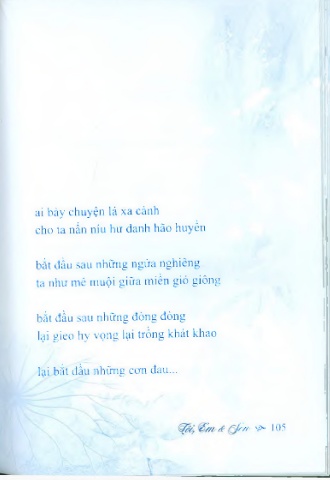 ai bày chuyện lá xa cành
cho ta nấn níu hư danh hão huyền
bắt đầu sau những ngửa nghiêng
ta như mê muội giữa miền gió giông
bắt đầu sau những đòng đòng
lại gieo hy vọng lại trồng khát khao
lại bắt đầu những cơn đau...
Tôi, Em & Sen 105